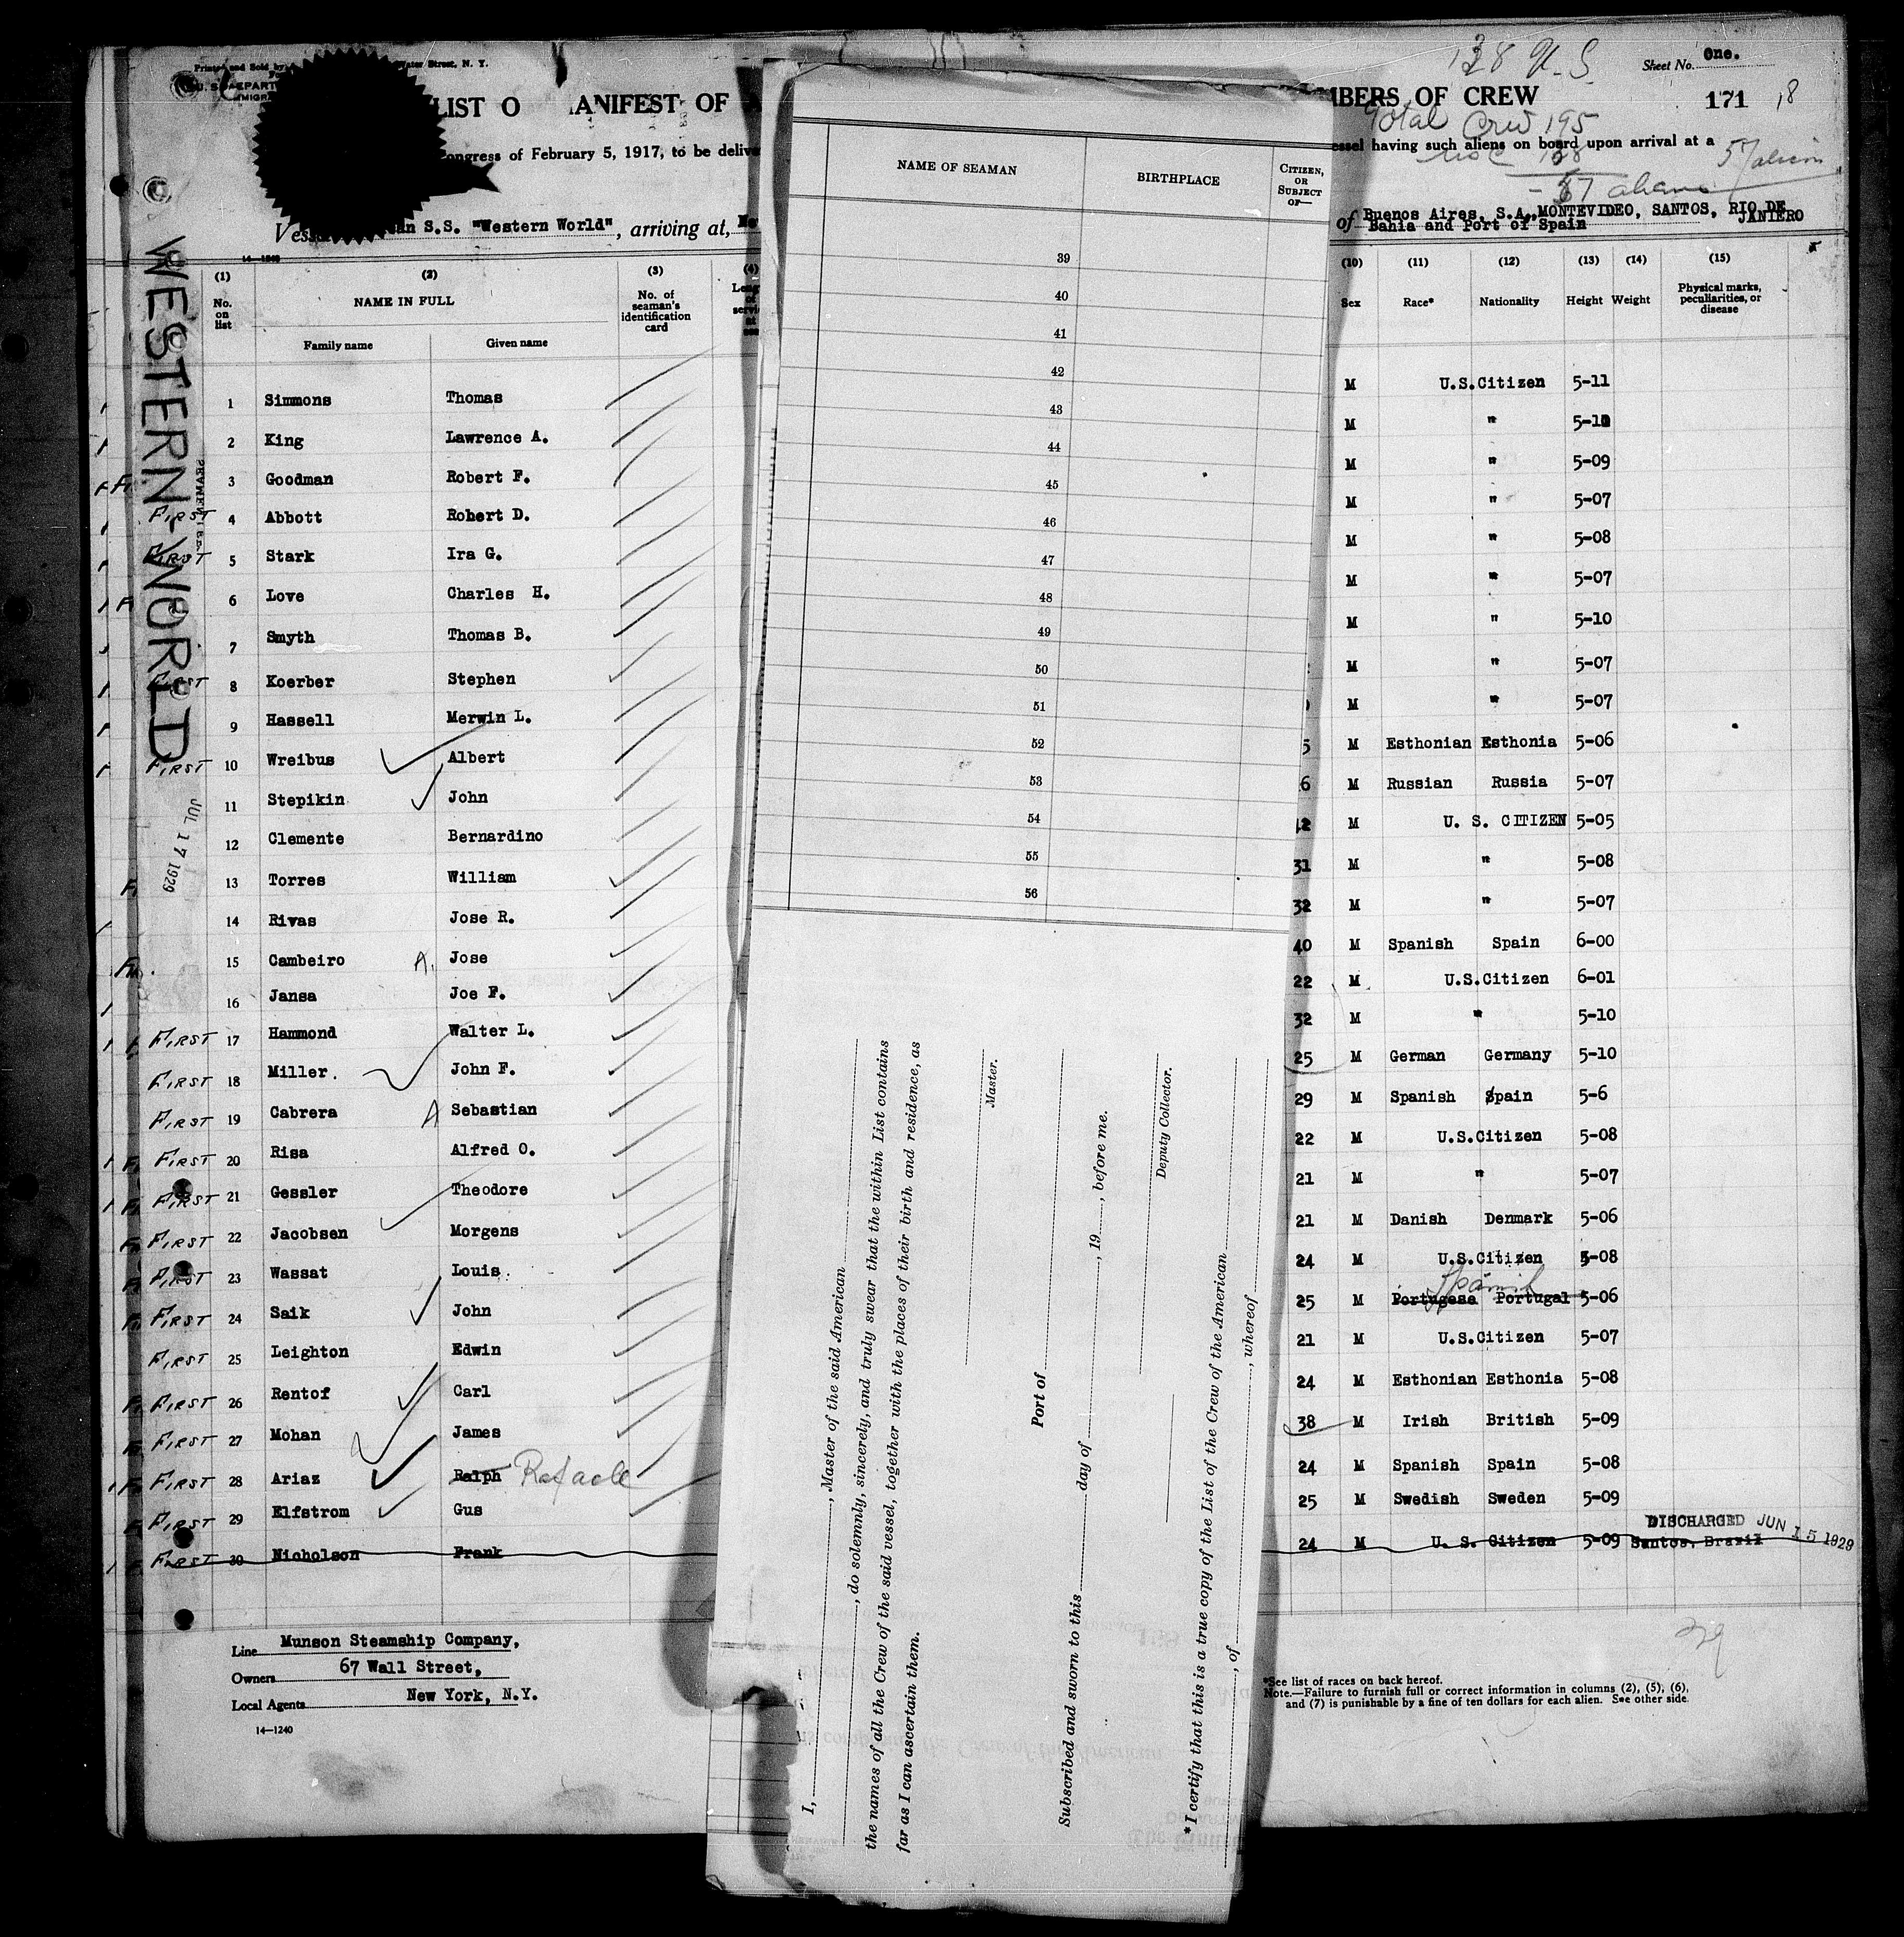 Printed and Sold by
Water Street, N. Y.
138 U.S
Sheet No. One.
LIST O
ANIFEST OF
MBERS OF CREW
171
18
Total Crew 195
ongress of February 5, 1917, to be delive
essel having such aliens on board upon arrival at a
138
57 aliens
57 aliens
an S.S. "Western World", arriving at,
of Buenos Aires, S.A., MONTEVIDEO, SANTOS, RIO DE JANIERO
Bahia and Port of Spain
WESTERN WORLD
JUL 17 1929
(1) (2) (3) (4) (10) (11) (12) (13) (14) (15)
No. on list NAME IN FULL No. of seaman's identification card Sex Race* Nationality Height Weight Physical marks, peculiarities, or disease
Family name Given name
1 Simmons Thomas M U.S.Citizen 5-11
2 King Lawrence A. M "
3 Goodman Robert F. M " 5-09
FIRST 4 Abbott Robert D. M " 5-07
FIRST 5 Stark Ira G. M " 5-08
6 Love Charles H. M " 5-07
7 Smyth Thomas B. M " 5-10
FIRST 8 Koerber Stephen M " 5-07
9 Hassell Merwin L. M " 5-07
FIRST 10 Wreibus Albert 5 M Esthonian Esthonia 5-06
11 Stepikin John 6 M Russian Russia 5-07
12 Clemente Bernardino 42 M U. S. CITIZEN 5-05
13 Torres William 31 M " 5-08
14 Rivas Jose R. 32 M " 5-07
15 Cambeiro A. Jose 40 M Spanish Spain 6-00
16 Jansa Joe F. 22 M U.S.Citizen 6-01
FIRST 17 Hammond Walter L. 32 M " 5-10
FIRST 18 Miller. John F. 25 M German Germany 5-10
FIRST 19 Cabrera A Sebastian 29 M Spanish Spain 5-6
FIRST 20 Risa Alfred O. 22 M U.S.Citizen 5-08
FIRST 21 Gessler Theodore 21 M " 5-07
FIRST 22 Jacobsen Morgens 21 M Danish Denmark 5-06
FIRST 23 Wassat Louis 24 M U.S.Citizen 5-08
Spanish
FIRST 24 Saik John 25 M Portugese Portugal 5-06
FIRST 25 Leighton Edwin 21 M U.S.Citizen 5-07
FIRST 26 Rentof Carl 24 M Esthonian Esthonia 5-08
FIRST 27 Mohan James 38 M Irish British 5-09
FIRST 28 Ariaz Ralph Rafaele 24 M Spanish Spain 5-08
FIRST 29 Elfstrom Gus 25 M Swedish Sweden 5-09
DISCHARGED JUN 15 1929
FIRST 30 Nicholson Frank 24 M U. S. Citizen 5-09 Santos, Brazil
29
Line Munson Steamship Company,
Owners 67 Wall Street,
Local Agents New York, N.Y.
14—1240
*See list of races on back hereof.
Note.—Failure to furnish full or correct information in columns (2), (5), (6),
and (7) is punishable by a fine of ten dollars for each alien. See other side.
NAME OF SEAMAN BIRTHPLACE CITIZEN, OR SUBJECT OF—
39
40
41
42
43
44
45
46
47
48
49
50
51
52
53
54
55
56
I, , Master of the said American
, do solemnly, sincerely, and truly swear that the within List contains
the names of all the Crew of the said vessel, together with the places of their birth and residence, as
far as I can ascertain them.
Master.
Port of
Subscribed and sworn to this day of , 19 , before me.
Deputy Collector.
*I certify that this is a true copy of the List of the Crew of the American
, of , whereof